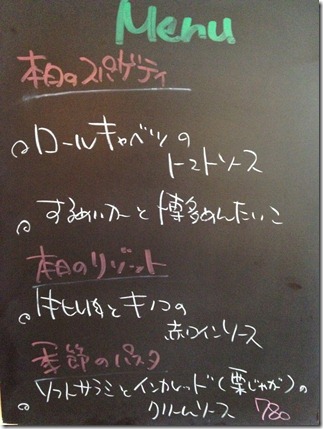 Menu
本日のスパゲティ
ロールキャベツの
トマトソース
するめいかーと博多めんたいこ
本日のリゾット
牛ヒレ肉とキノコの
赤ワインソース
季節のパスタ
ソフトサラミとインカレッド(栗じゃが)の
クリームソース 780